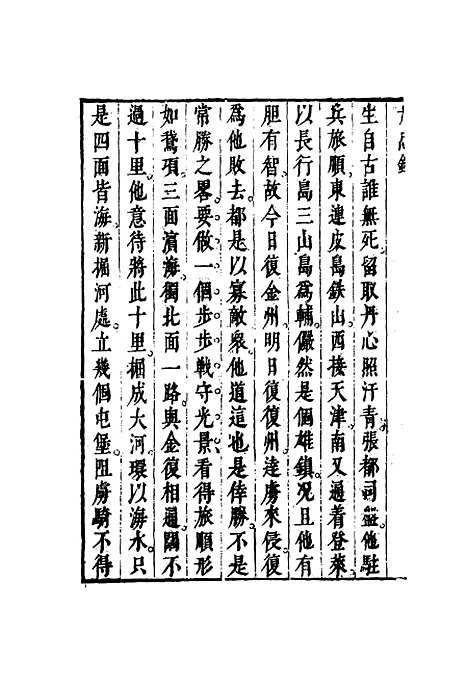 生自古誰無死留取丹心照汗青張都司盤他駐
兵旅順東連皮島鉄山西接天津南又逼着登萊
以長行島三山島爲輔儼然是個雄鎮况且他有
胆有智故今日復金州明日復復州達虜來侵復
爲他敗去都是以寡敵衆他道這也是倖勝不是
常勝之畧要做一個步步戰守光景看得旅順形
如鵞項三面濱海獨北面一路與金復相通闊不
過十里他意待將此十里掘成大河環以海水只
是四面皆海新掘河處立幾個屯堡阻虜騎不得